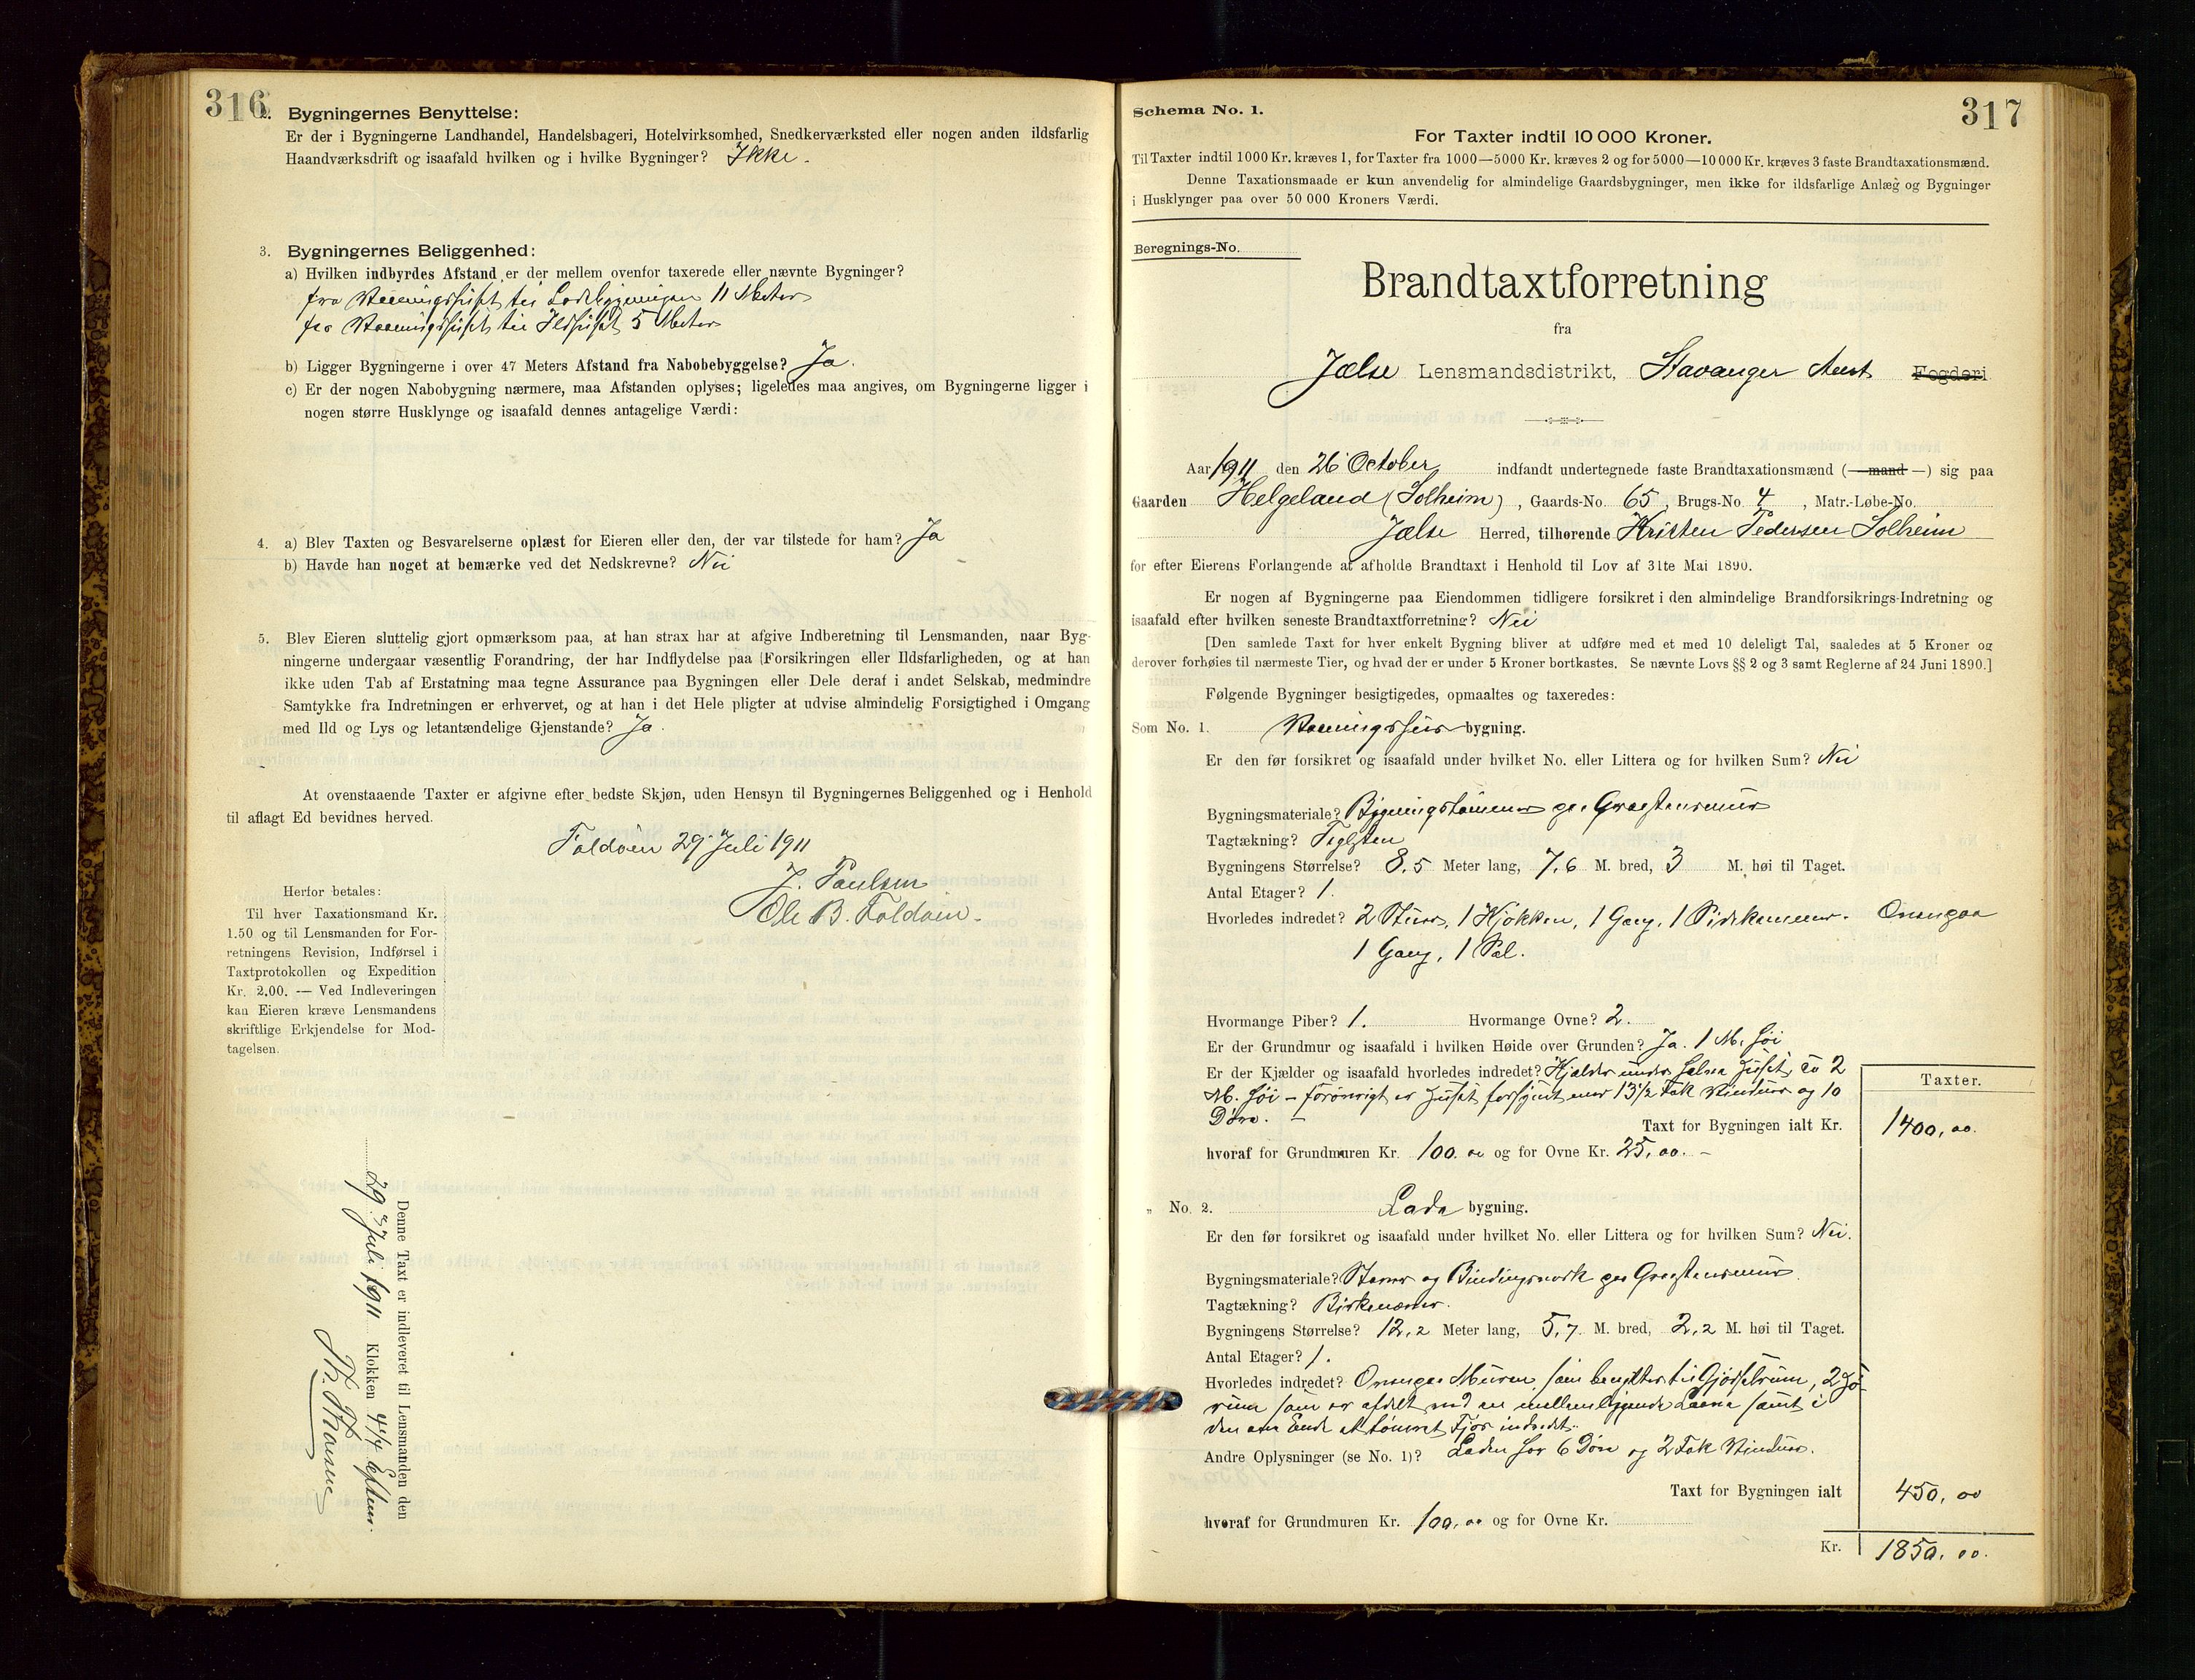 316
2. Bygningernes Benyttelse:
Er der i Bygningerne Landhandel, Handelsbageri, Hotelvirksomhed, Snedkerværksted eller nogen anden ildsfarlig
Haandværksdrift og isaafald hvilken og i hvilke Bygninger? Ikke.
3. Bygningernes Beliggenhed:
a) Hvilken indbyrdes Afstand er der mellem ovenfor taxerede eller nævnte Bygninger?
fra Vaaningshuset til Ladebygningen 11 Meter
fra Vaaningshuset til Ildhuset 5 Meter
b) Ligger Bygningerne i over 47 Meters Afstand fra Nabobebyggelse? Ja.
c) Er der nogen Nabobygning nærmere, maa Afstanden oplyses; ligeledes maa angives, om Bygningerne ligger i
nogen større Husklynge og isaafald dennes antagelige Værdi:
4. a) Blev Taxten og Besvarelserne oplæst for Eieren eller den, der var tilstede for ham? Ja
b) Havde han noget at bemærke ved det Nedskrevne? Nei
5. Blev Eieren sluttelig gjort opmærksom paa, at han strax har at afgive Indberetning til Lensmanden, naar Byg-
ningerne undergaar væsentlig Forandring, der har Indflydelse paa (Forsikringen eller Ildsfarligheden, og at han
ikke uden Tab af Erstatning maa tegne Assurance paa Bygningen eller Dele deraf i andet Selskab, medmindre
Samtykke fra Indretningen er erhvervet, og at han i det Hele pligter at udvise almindelig Forsigtighed i Omgang
med Ild og Lys og letantændelige Gjenstande? Ja.
At ovenstaaende Taxter er afgivne efter bedste Skjøn, uden Hensyn til Bygningernes Beliggenhed og i Henhold
til aflagt Ed bevidnes herved.
Foldøen 29 Juli 1911
J. Paulsen
Ole B. Foldøen.
Herfor betales:
Til hver Taxationsmand Kr.
1.50 og til Lensmanden for For-
retningens Revision, Indførsel i
Taxtprotokollen og Expedition
Kr. 2,00. — Ved Indleveringen
kan Eieren kræve Lensmandens
skriftlige Erkjendelse for Mod-
tagelsen.
Denne Taxt er indleveret til Lensmanden den
29 Juli 1911 Klokken 4 1/4 Efterm.
317
Schema No. 1.
For Taxter indtil 10 000 Kroner.
Til Taxter indtil 1000 Kr. kræves 1, for Taxter fra 1000—5000 Kr. kræves 2 og for 5000—10 000 Kr. kræves 3 faste Brandtaxationsmænd.
Denne Taxationsmaade er kun anvendelig for almindelige Gaardsbygninger, men ikke for ildsfarlige Anlæg og Bygninger
i Husklynger paa over 50 000 Kroners Værdi.
Beregnings-No.
Brandtaxtforretning
fra
Jælse Lensmandsdistrikt, Stavanger Amt Fogderi
Aar 1911 den 26 October indfandt undertegnede faste Brandtaxationsmænd (—mand—) sig paa
Gaarden Helgeland (Solheim), Gaards-No. 65, Brugs-No. 4, Matr.-Løbe-No.
Jælse Herred, tilhørende Kristen Pedersen Solheim
for efter Eierens Forlangende at afholde Brandtaxt i Henhold til Lov af 31te Mai 1890.
Er nogen af Bygningerne paa Eiendommen tidligere forsikret i den almindelige Brandforsikrings-Indretning og
isaafald efter hvilken seneste Brandtaxtforretning? Nei
[Den samlede Taxt for hver enkelt Bygning bliver at udføre med et med 10 deleligt Tal, saaledes at 5 Kroner og
derover forhøies til nærmeste Tier, og hvad der er under 5 Kroner bortkastes. Se nævnte Lovs §§ 2 og 3 samt Reglerne af 24 Juni 1890.]
Følgende Bygninger besigtigedes, opmaaltes og taxeredes:
Som No. 1. Vaaningshus bygning.
Er den før forsikret og isaafald under hvilket No. eller Littera og for hvilken Sum? Nei
Bygningsmateriale? Bygningstømmer paa Graastensmur
Tagtækning? Teglsten
Bygningens Størrelse? 8,5 Meter lang, 7,6 M. bred, 3 M. høi til Taget.
Antal Etager? 1.
Hvorledes indredet? 2 Stuer, 1 Kjøkken, 1 Gang, 1 Sidekammer. Ovenpaa
1 Gang, 1 Sal.
Hvormange Piber? 1. Hvormange Ovne? 2.
Er der Grundmur og isaafald i hvilken Høide over Grunden? Ja. 1 M. høi
Er der Kjælder og isaafald hvorledes indredet? Kjælder under halve huset, ca 2
M. høi – forøvrigt er huset forsynt med 13 1/2 Fak Vinduer og 10
Døre. –
Taxter.
Taxt for Bygningen ialt Kr. 1400,00.
hvoraf for Grundmuren Kr. 100.00 og for Ovne Kr. 25,00. –
„ No. 2. Lade bygning.
Er den før forsikret og isaafald under hvilket No. eller Littera og for hvilken Sum? Nei.
Bygningsmateriale? Staver og Bindingsverk paa Graastensmur.
Tagtækning? Birkenæver.
Bygningens Størrelse? 12,2 Meter lang, 5,7 M. bred, 2,2 M. høi til Taget.
Antal Etager? 1.
Hvorledes indredet? Ovenpaa Muren som benyttes til Gjødselrum, 2 Hø-
rum som er afdelt ved en mellemliggende Laave samt i
den ene Ende et tømret Fjøs indredet.
Andre Oplysninger (se No. 1)? Laden har 6 Døre og 2 Fak Vinduer.
Taxt for Bygningen ialt 450,00
hvoraf for Grundmuren Kr. 100,00 og for Ovne Kr.
Kr. 1850.00.